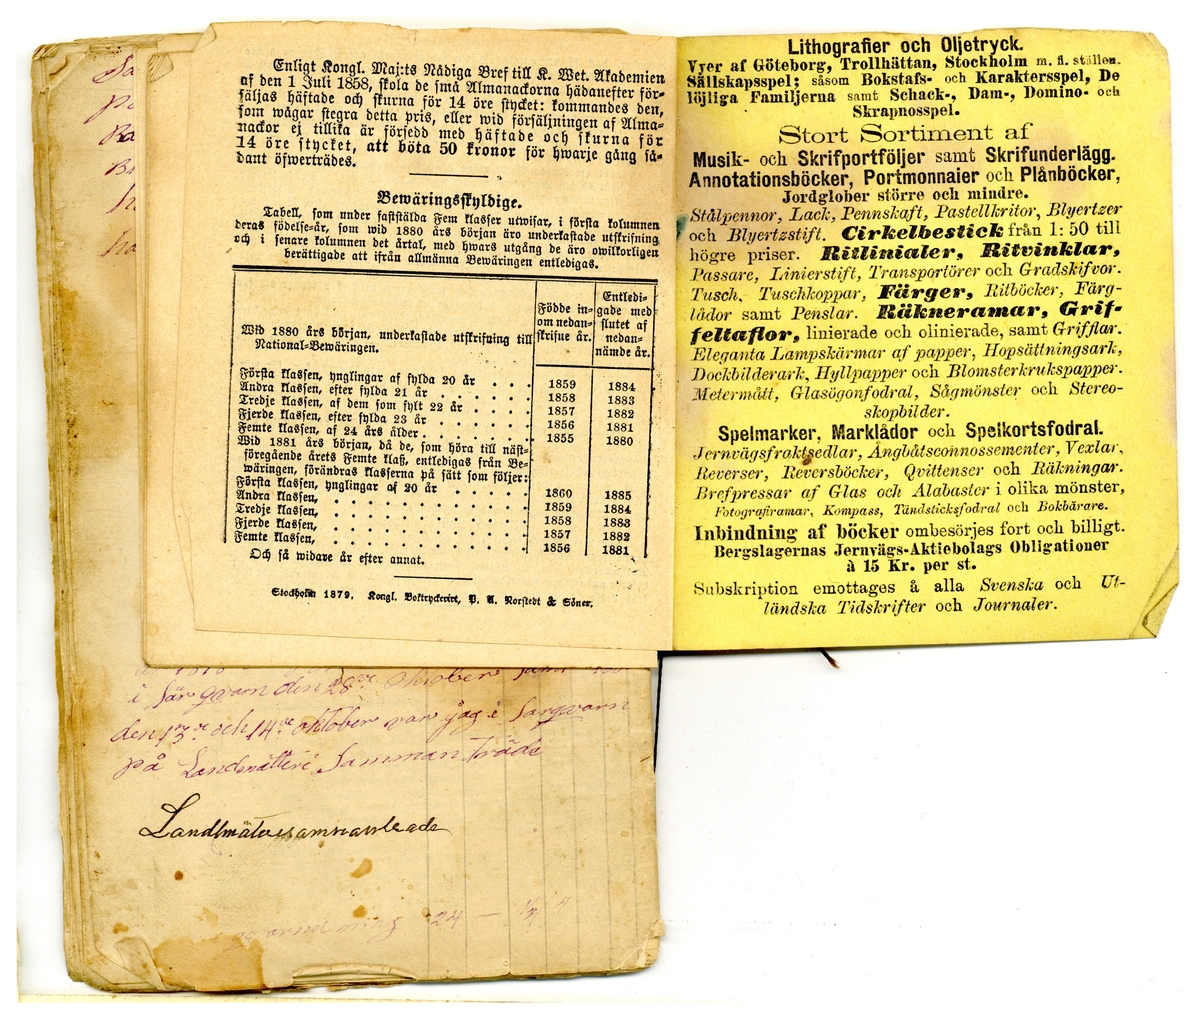 Enligt Kongl. Maj:ts Nådiga Bref till K. Wet. Akademien
af den 1 Juli 1858, skola de små Almanackorna hädanefter för-
säljas häftade och skurna för 14 öre stycket: kommandes den,
som wågar stegra detta pris, eller wid försäljningen af Alma-
nackor ej tillika är försedd med häftade och skurna för
14 öre stycket, att böta 50 kronor för hwarje gång så-
dant öfwerträdes.
Bewäringsskyldige.
Tabell, som under fastställda Fem klasser utwisar, i första kolumnen
deras födelse-år, som wid 1880 års början äro underkastade utskrifning
och i senare kolumnen det årtal, med hwars utgång de äro owilkorligen
berättigade att ifrån allmänna Bewäringen entledigas.
Wid 1880 års början, underkastade utskrifning till
National-Bewäringen.
Födde in-
om nedan-
skrifne år.
Entledi-
gade med
slutet af
nedan-
nämde år.
Första klassen, ynglingar af fylda 20 år . . . 1859 1884
Andra klassen, efter fylda 21 år . . . . 1858 1883
Tredje klassen, af dem som fylt 22 år . . . . 1857 1882
Fjerde klassen, efter fylda 23 år . . . . . 1856 1881
Femte klassen, af 24 års ålder . . . . . . 1855 1880
Wid 1881 års början, då de, som höra till näst-
föregående årets Femte klaß, entledigas från Be-
wäringen, förändras klasserna på sätt som följer:
Första klassen, ynglingar af 20 år . . . . . 1860 1885
Andra klassen, . . . . . . . . . . 1859 1884
Tredje klassen, . . . . . . . . . . 1858 1883
Fjerde klassen, . . . . . . . . . . 1857 1882
Femte klassen, . . . . . . . . . . 1856 1881
Och så widare år efter annat.
Stockholm 1879. Kongl. Boktryckeriet, P. A. Norstedt & Söner.
Lithografier och Oljetryck.
Vyer af Göteborg, Trollhättan, Stockholm m. fl. ställen.
Sällskapsspel; såsom Bokstafs- och Karaktersspel, De
löjliga Familjerna samt Schack-, Dam-, Domino- och
Skrapnosspel.
Stort Sortiment af
Musik- och Skrifportföljer samt Skrifunderlägg.
Annotationsböcker, Portmonnaier och Plånböcker,
Jordglober större och mindre.
Stålpennor, Lack, Pennskaft, Pastellkritor, Blyertzer
och Blyertzstift. Cirkelbestick från 1: 50 till
högre priser. Ritlinialer, Ritvinklar,
Passare, Linierstift, Transportörer och Gradskifvor.
Tusch, Tuschkoppar, Färger, Ritböcker, Färg-
lådor samt Penslar. Räkneramar, Grif-
feltaflor, linierade och olinierade, samt Grifflar.
Eleganta Lampskärmar af papper, Hopsättningsark,
Dockbilderark, Hyllpapper och Blomsterkrukspapper.
Metermått, Glasögonfodral, Sågmönster och Stereo-
skopbilder.
Spelmarker, Marklådor och Spelkortsfodral.
Jernvägsfraktsedlar, Ångbåtsconnossementer, Vexlar,
Reverser, Reversböcker, Qvittenser och Räkningar.
Brefpressar af Glas och Alabaster i olika mönster,
Fotografiramar, Kompass, Tändsticksfodral och Bokbärare.
Inbindning af böcker ombesörjes fort och billigt.
Bergslagernas Jernvägs-Aktiebolags Obligationer
à 15 Kr. per st.
Subskription emottages å alla Svenska och Ut-
ländska Tidskrifter och Journaler.
i Särqvarn den 28de oktober samt
den 13de och 14de oktober var jag i Sarqvarn
på Landmätteri Samman Träde
24 —